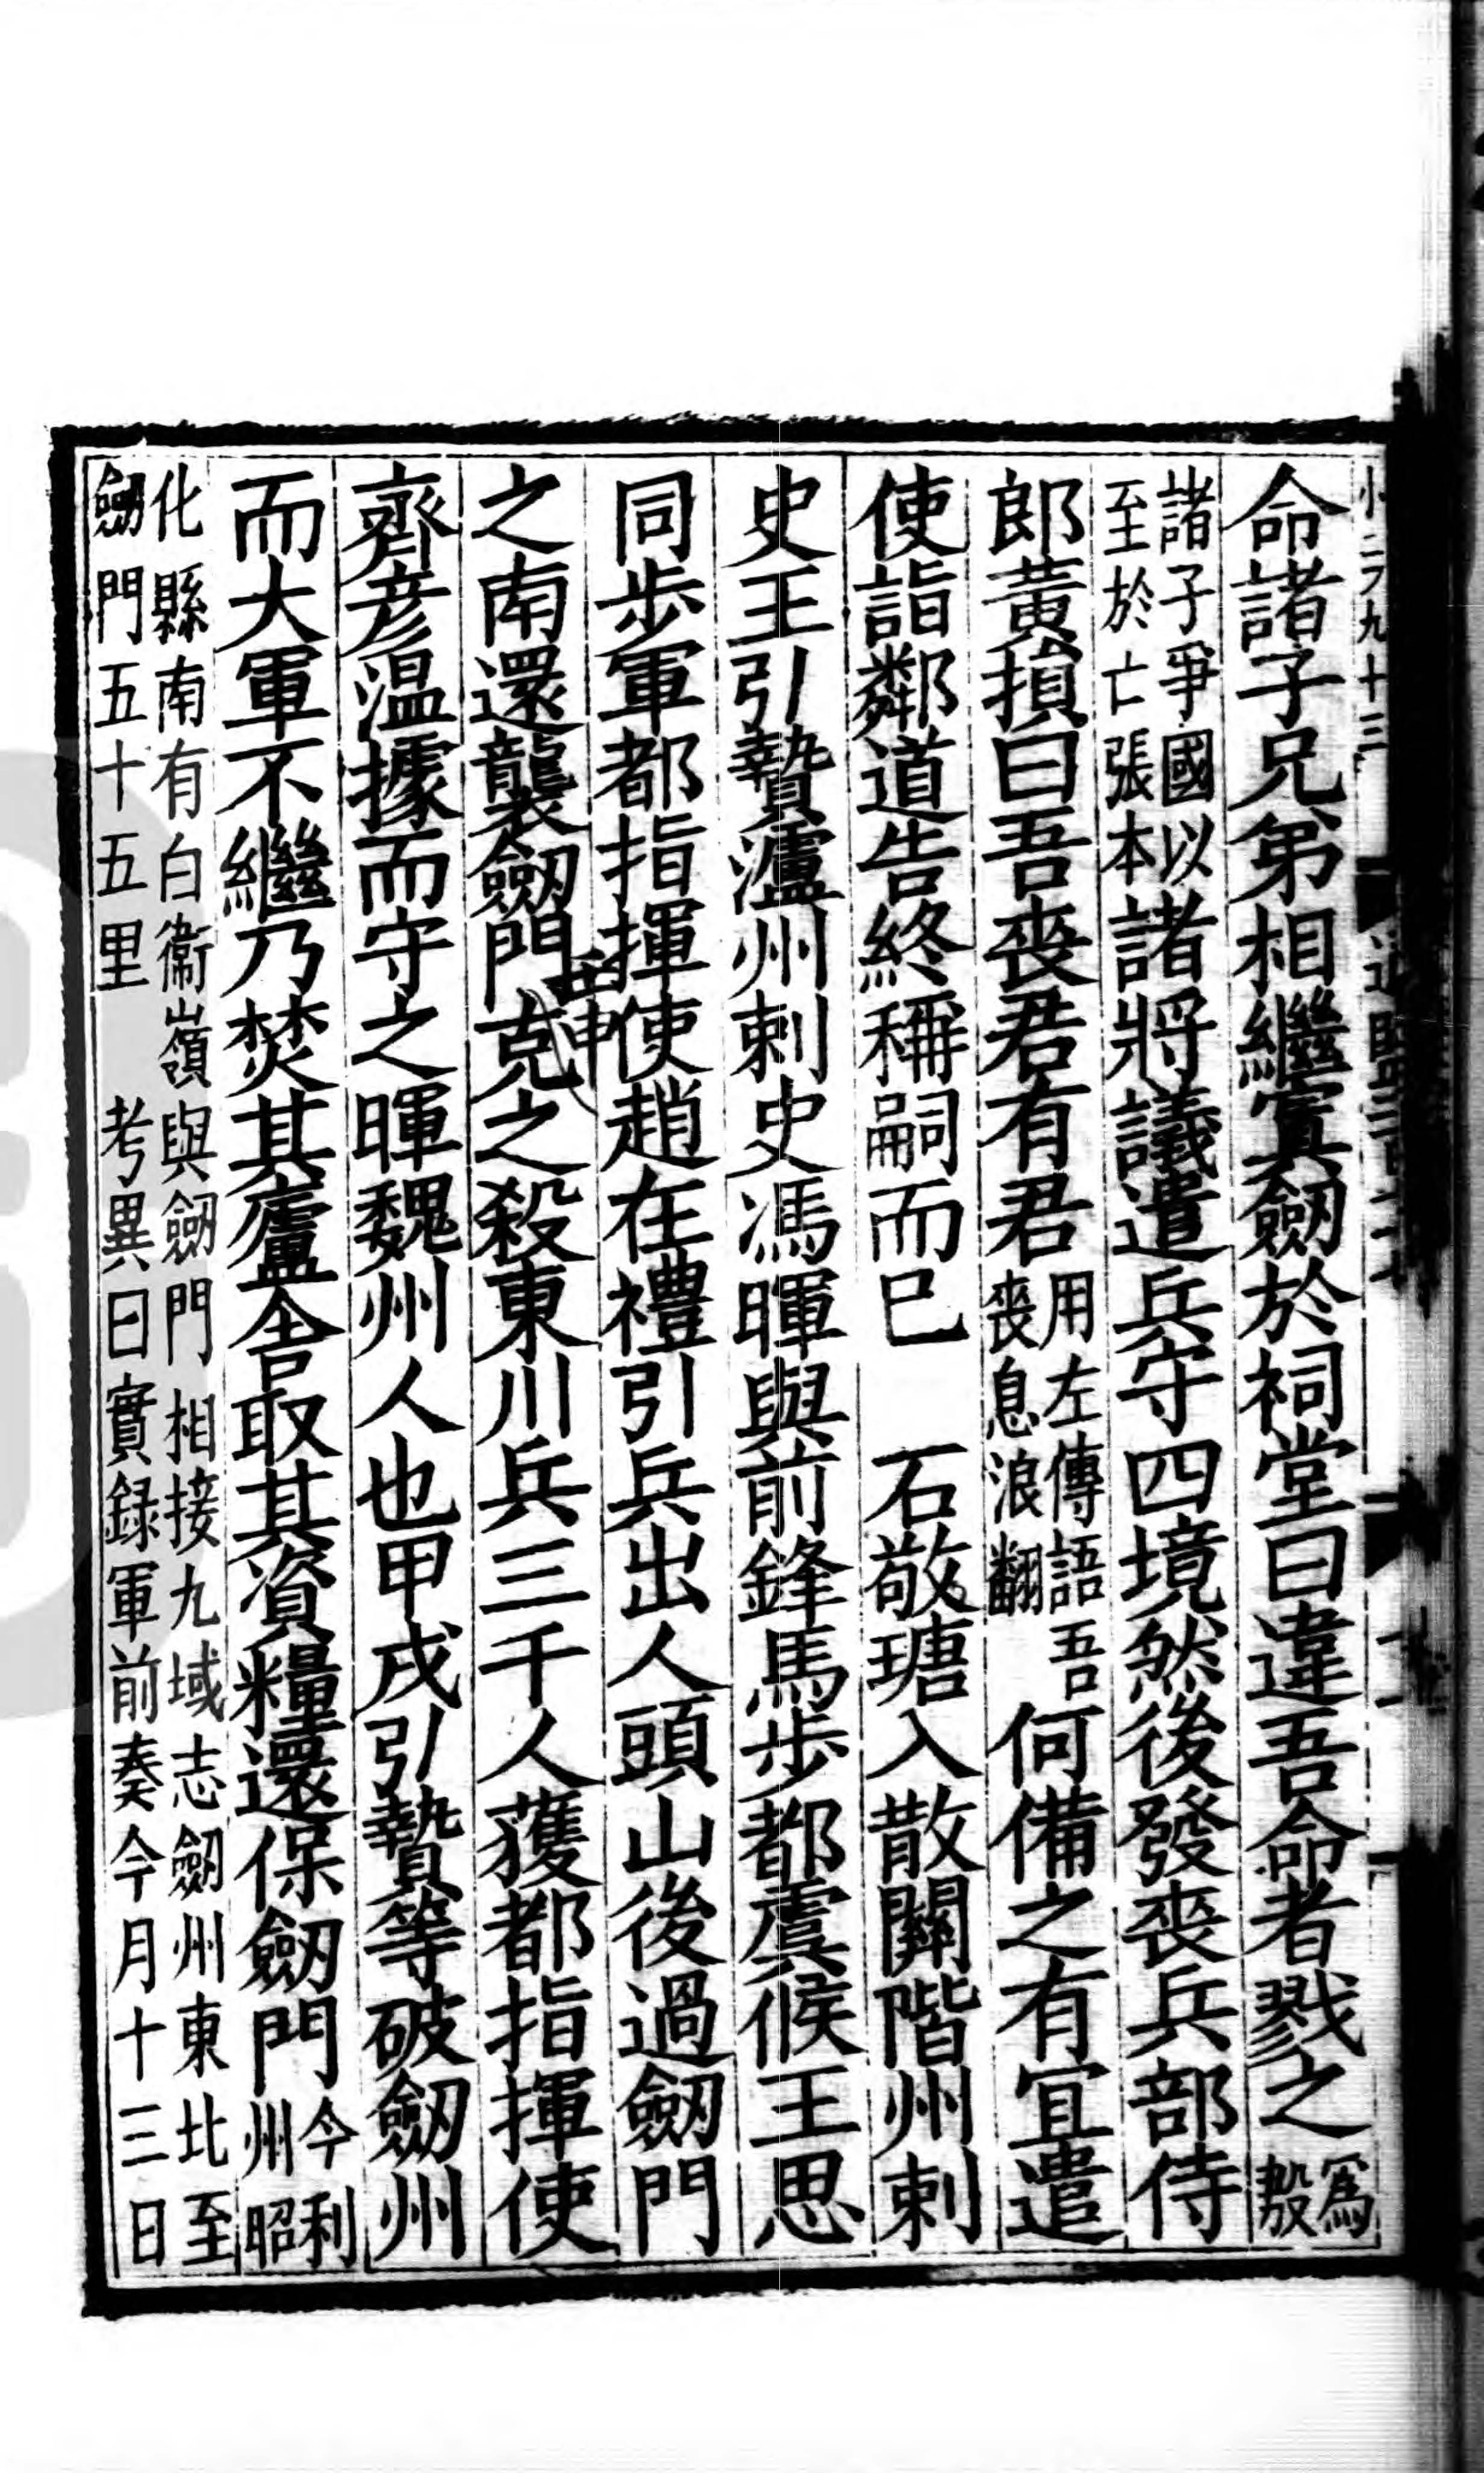 命諸子兄弟相繼寘劒於祠堂曰違吾命者戮之爲殷
諸子爭國以至於亡張本諸將議遣兵守四境然後發喪兵部侍
郎黃損曰吾喪君有君用左傳語吾喪息浪翻何備之有宜遣
使詣鄰道告終稱嗣而已　石敬瑭入散關階州刺
史王引贄瀘州刺史馮暉與前鋒馬步都虞候王思
同步軍都指揮使趙在禮引兵出人頭山後過劒門
之南還襲劒門壬申克之殺東川兵三千人獲都指揮使
齊彦温據而守之暉魏州人也甲戌引贄等破劒州
而大軍不繼乃焚其廬舍取其資糧還保劒門今利州昭
化縣南有白衞嶺與劒門相接九域志劒州東北至劒門五十五里　考異曰實録軍前奏今月十三日